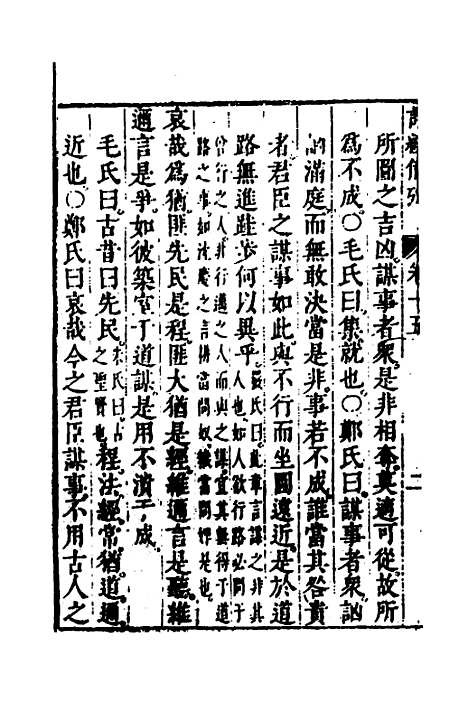 卷十五
二
所圖之吉凶謀事者衆是非相奪莫適可從故所
爲不成〇毛氏曰集就也〇鄭氏曰謀事者衆訩
訩滿庭而無敢決當是非事若不成誰當其咎責
者君臣之謀事如此與不行而坐圖遠近是於道
路無進跬步何以異乎
嚴氏曰此章言謀之非其
人也如人欲行路必問于
嘗行之人非行邁之人而與之謀宜其無得于道
路之事如
之言耕當問奴織當問婢是也
哀哉爲猶匪先民是程匪大猶是經維邇言是聽維
邇言是爭如彼築室于道謀是用不潰于成
毛氏曰古昔曰先民
朱氏曰古
之聖賢也
程法經常猶道邇
近也〇鄭氏曰哀哉今之君臣謀事不用古人之